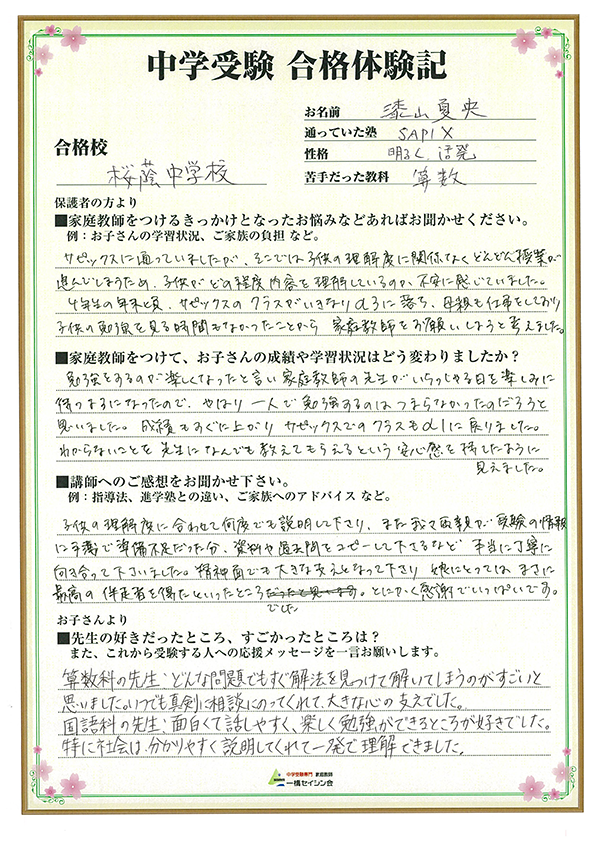 中学受験 合格体験記
お名前 漆山夏央
通っていた塾 SAPIX
合格校
性格 明るく活発
桜蔭中学校
苦手だった教科 算数
保護者の方より
■家庭教師をつけるきっかけとなったお悩みなどあればお聞かせください。
例：お子さんの学習状況、ご家族の負担 など。
サピックスに通っていましたが、そこでは子供の理解度に関係なくどんどん授業が
進んでしまうため、子供がどの程度内容を理解しているのか、不安に感じていました。
4年生の年末と夏、サピックスのクラスがいきなりα3に落ち、母親も仕事をしており
子供の勉強を見る時間もなかったことから 家庭教師をお願いしようと考えました。
■家庭教師をつけて、お子さんの成績や学習状況はどう変わりましたか？
勉強をするのが楽しくなったと言い家庭教師の先生がいらっしゃる日を楽しみに
待つようになったので、やはり一人で勉強するのはつまらなかったのだろうと
思いました。成績もすぐに上がりサピックスでのクラスもα1に戻りました。
わからないことを先生になんでも教えてもらえるという安心感を持したように
見えました。
■講師へのご感想をお聞かせ下さい。
例：指導法、進学塾との違い、ご家族へのアドバイス など。
子供の理解度に合わせて何度でも説明して下さり、また我々両親が受験の情報
に手薄で準備不足だった分、資料や過去問をコピーして下さるなど 本当に丁寧に
向き合って下さいました。精神面でも大きな支えとなって下さり 娘にとっては まさに
最高の伴走者を得たといったところでした。とにかく感謝でいっぱいです。
お子さんより
■先生の好きだったところ、すごかったところは？
また、これから受験する人への応援メッセージを一言お願いします。
算数科の先生：どんな問題でもすぐ解法を見つけて解いてしまうのがすごいと
思いました。いつでも真剣に相談にのってくれて、大きな心の支えでした。
国語科の先生：面白くて話しやすく、楽しく勉強ができるところが好きでした。
特に社会は、分かりやすく説明してくれて一発で理解できました。
中学受験専門 家庭教師
一橋セイシン会